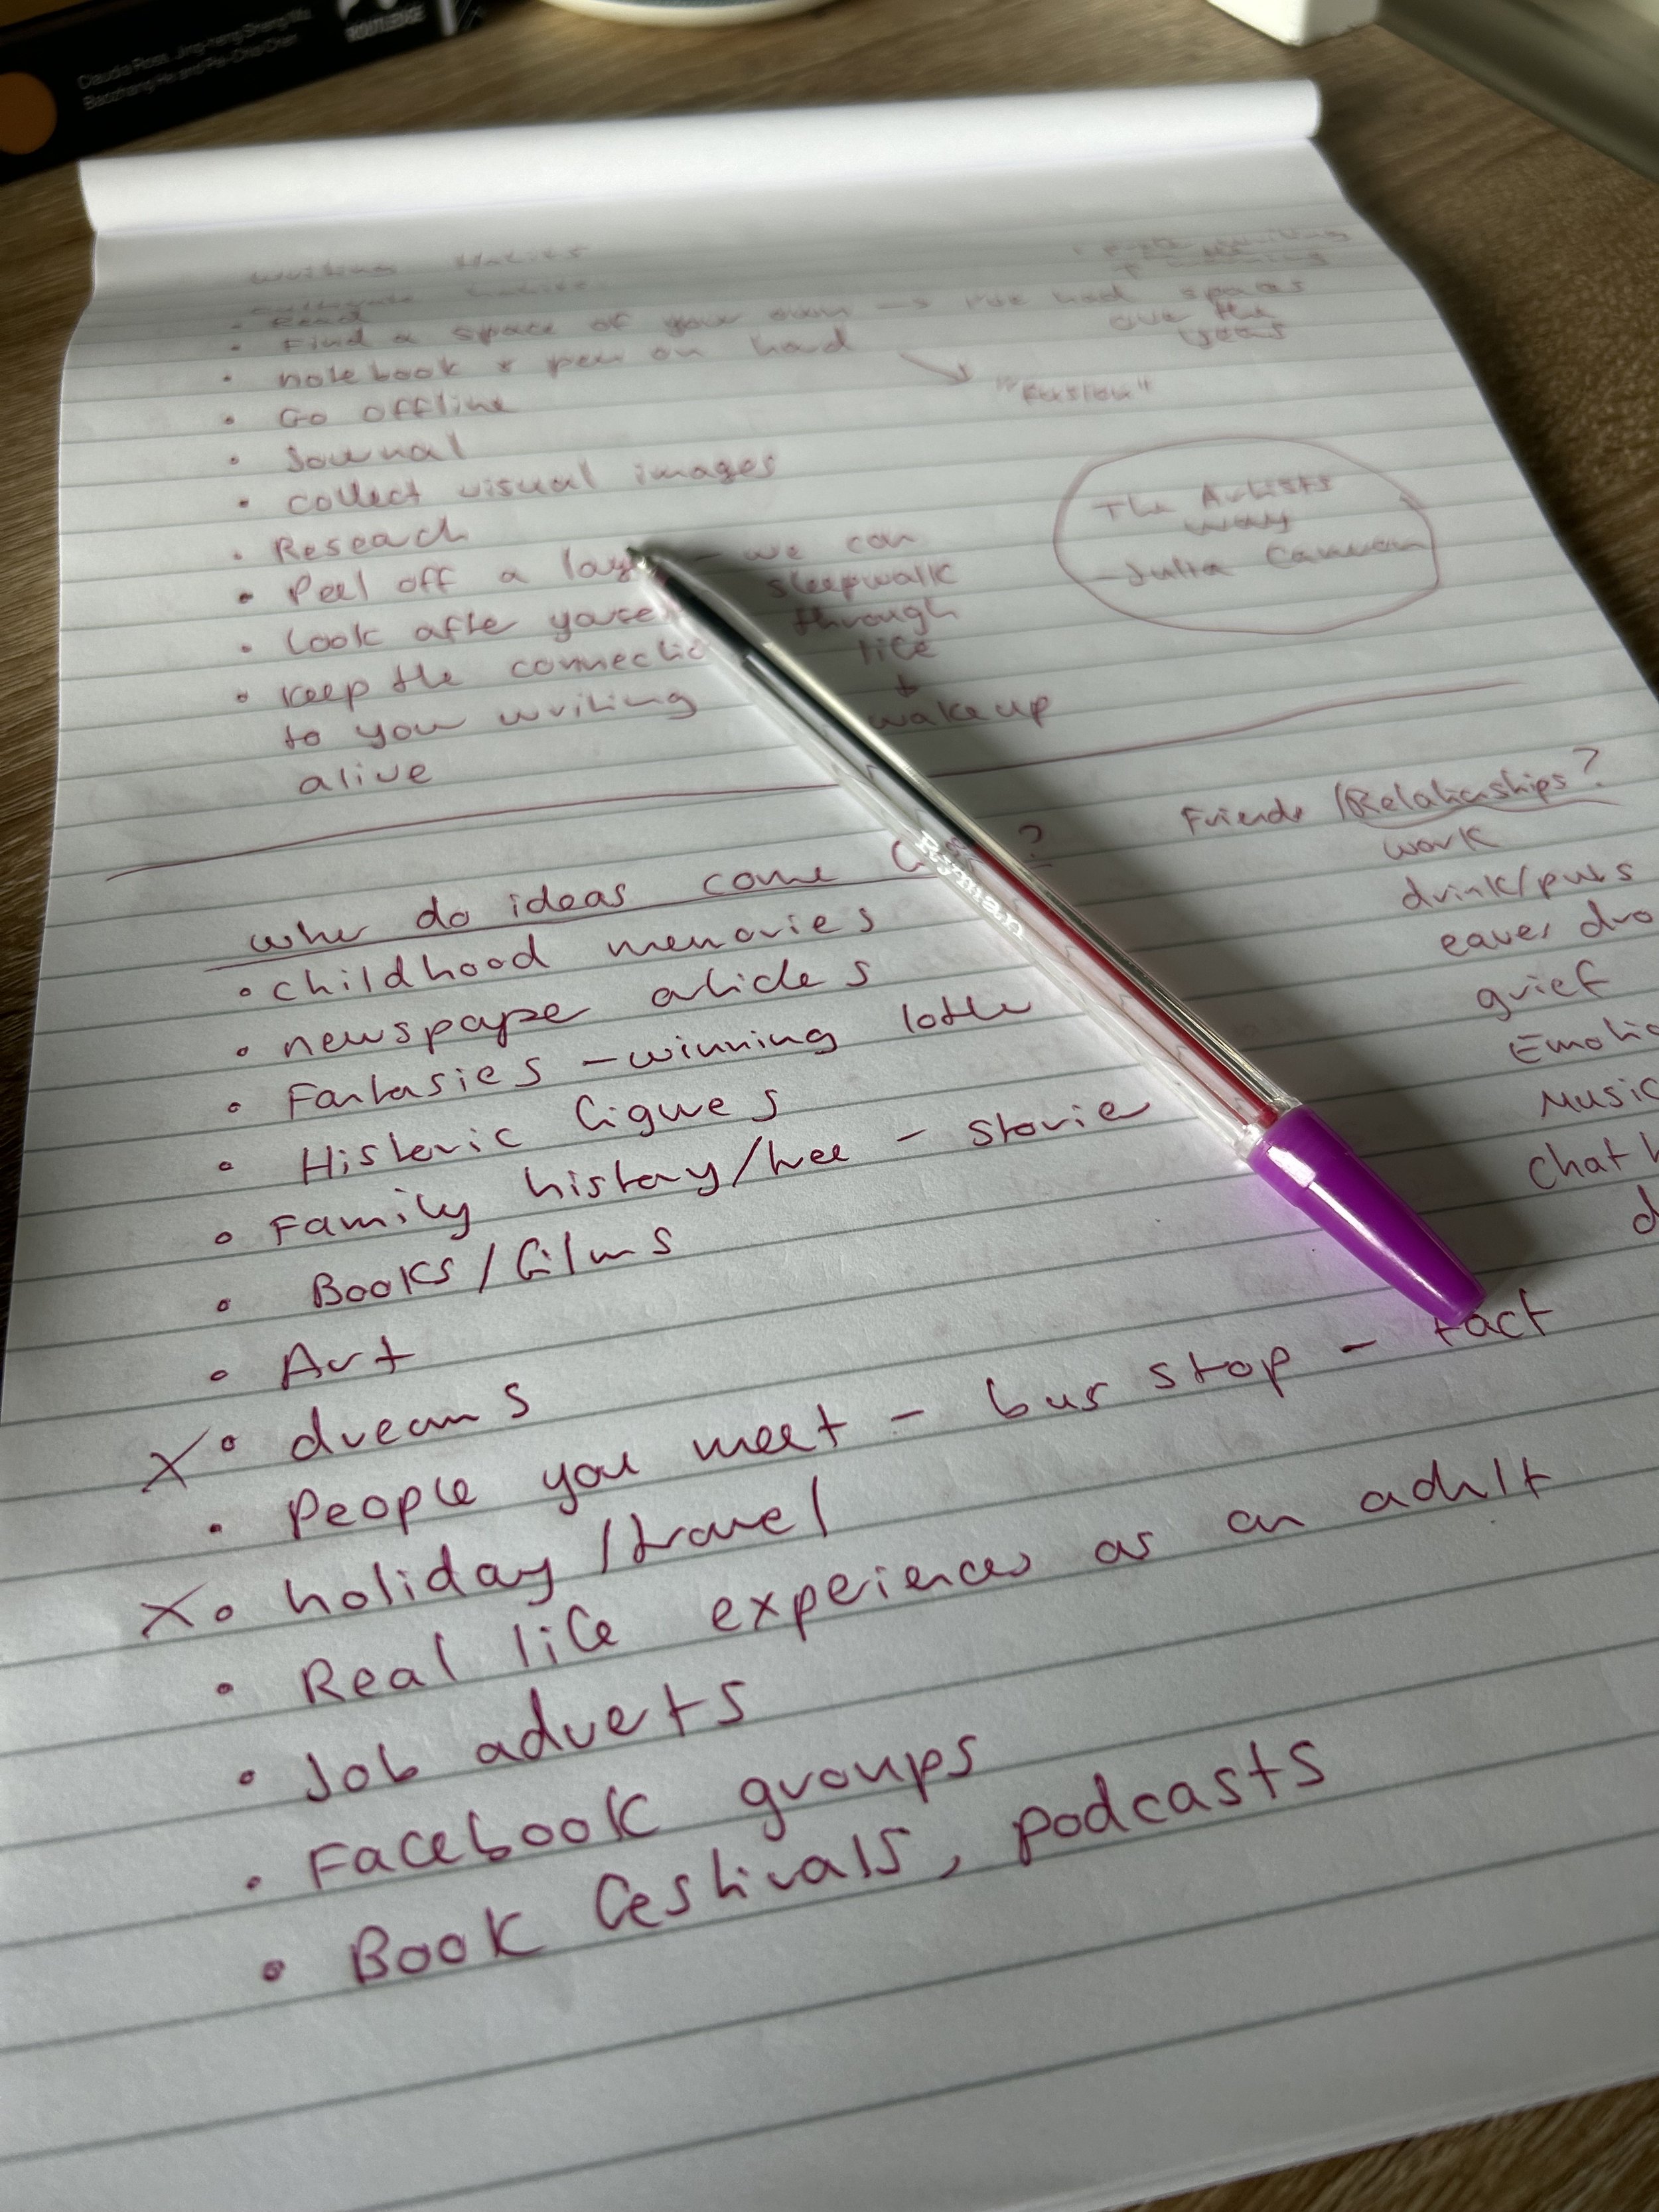 ROUTLEDGE
Claudia Ross, Jing-heng Sheng Ma,
Baozhang He and Pei-Chia Chen
Writing Habits
• Read
• Find a space of your own → I've had spaces
over the
years
• notebook + pen on hand
• Go offline
• Journal
• collect visual images
• Reseach
• Peel off a lay – we can
sleepwalk
through
life
+
wake up
• Look after yourse
• Keep the connectio
to your writing
alive
The Artists
way
– Julia Cameron
Wher do ideas come ?
• childhood memories
• newspaper articles
• Fantasies – winning lotter
• Historic figures
• Family history/tree – storie
• Books/films
• Art
X • dreams
• People you meet – bus stop – fact
X • holiday/travel
• Real life experiences as an adult
• Job adverts
• Facebook groups
• Book festivals, podcasts
Friends/Relationships?
work
drink/pubs
eaves dro
grief
Emotio
Music
chat
d
Ryman